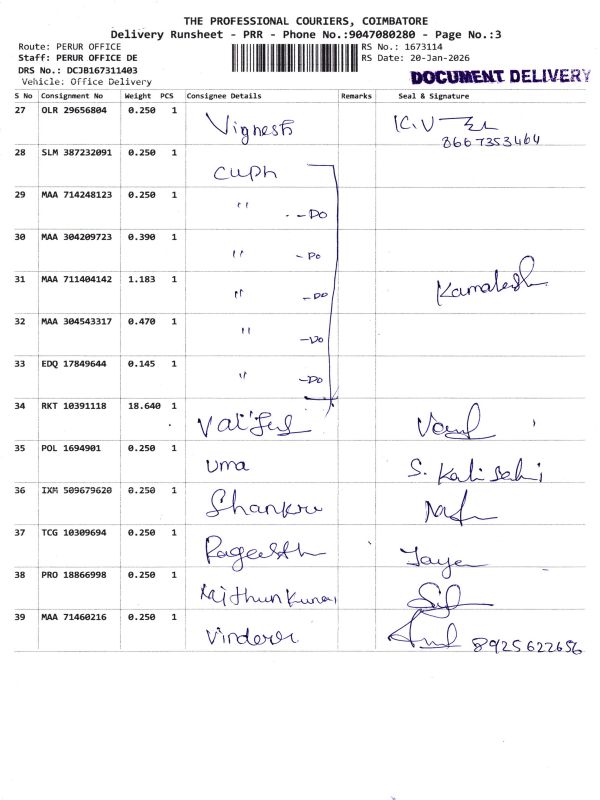 THE PROFESSIONAL COURIERS, COIMBATORE
Delivery Runsheet - PRR - Phone No.:9047080280 - Page No.:3
Route: PERUR OFFICE
RS No.: 1673114
Staff: PERUR OFFICE DE
RS Date: 20-Jan-2026
DRS No.: DCJB167311403
Vehicle: Office Delivery
DOCUMENT DELIVERY
S No Consignment No Weight PCS Consignee Details Remarks Seal & Signature
27 OLR 29656804 0.250 1 Vignesh K.V 8667353464
28 SLM 387232091 0.250 1 CUPh
29 MAA 714248123 0.250 1 " - Do
30 MAA 304209723 0.390 1 " - Do
31 MAA 711404142 1.183 1 " - Do Kamalesh
32 MAA 304543317 0.470 1 " - Do
33 EDQ 17849644 0.145 1 " - Do
34 RKT 10391118 18.640 1
35 POL 1694901 0.250 1 Uma S.
36 IXM 509679620 0.250 1
37 TCG 10309694 0.250 1
38 PRO 18866998 0.250 1
39 MAA 71460216 0.250 1 8925622656